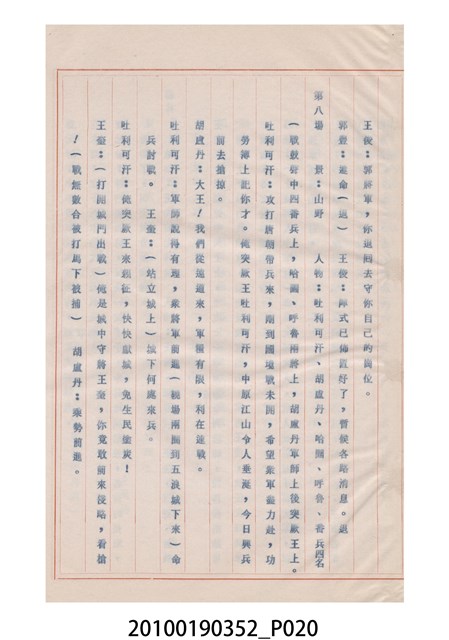 王俊：郭將軍，你退回去守你自己的崗位。
郭臺：遵命（退）　王俊：陣式已佈置好了，暫候各路消息。退
第八場　景：山野　人物：吐利可汗、胡盧丹、哈圖、呼魯、番兵四名
（戰鼓聲中四番兵上，哈圖、呼魯兩將上，胡盧丹軍師上後突厥王上。
吐利可汗：攻打唐朝帶兵來，剛到國境戰未開，希望衆軍盡力赴，功
勞簿上記你才。俺突厥王吐利可汗，中原江山令人垂涎，今日興兵
前去搶掠。
胡盧丹：大王！我們從遠道來，軍糧有限，利在速戰。
吐利可汗：軍師說得有理，衆將軍前進（繞場兩圈到五浪城下來）命
兵討戰。　王臺：（站立城上）城下何處來兵。
吐利可汗：俺突厥王來親征，快快獻城，免生民塗炭！
王臺：（打開城門出戰）俺是城中守將王臺，你竟敢前來侵略，看槍
！（戰無數合被打馬下被捕）　胡盧丹：乘勢前進。
20100190352_P020